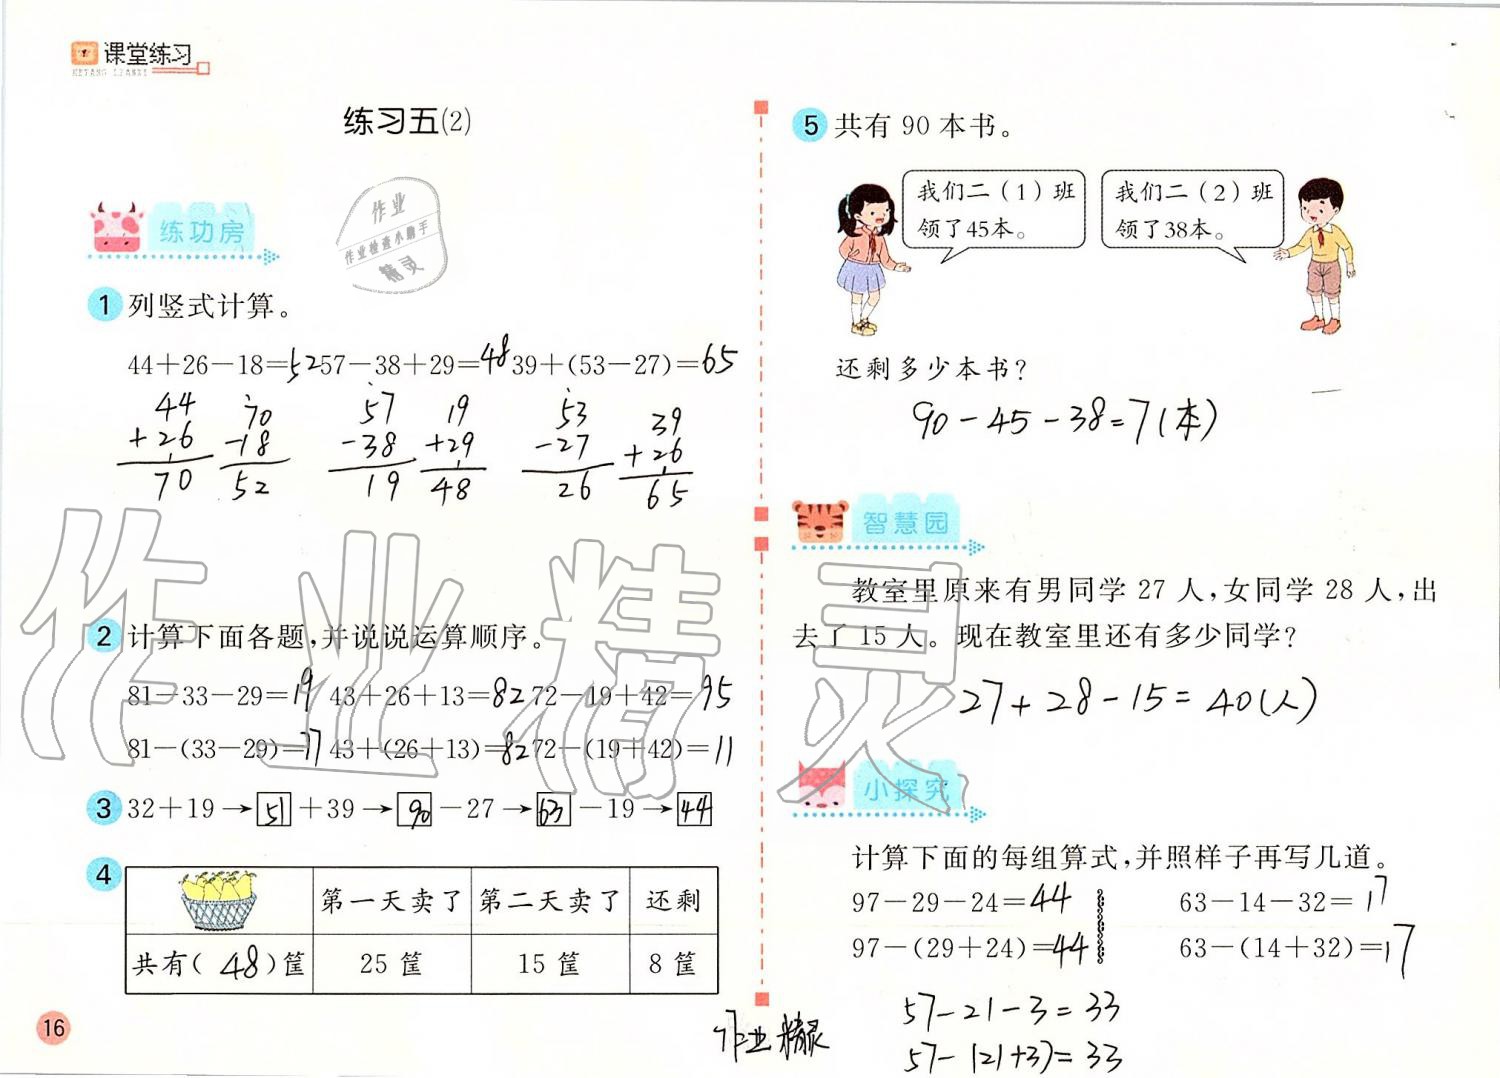 课堂练习
KETANG LIANXI
练习五(2)
作业
作业检查小助手
精灵
练功房
1 列竖式计算。
44+26-18=52 57-38+29=48 39+(53-27)=65
44 70 57 19 53 39
+26 -18 -38 +29 -27 +26
70 52 19 48 26 65
2 计算下面各题,并说说运算顺序。
81-33-29=19 43+26+13=82 72-19+42=95
81-(33-29)=77 43+(26+13)=82 72-(19+42)=11
3 32+19→51+39→90-27→63-19→44
4 第一天卖了 第二天卖了 还剩
共有(48)筐 25 筐 15 筐 8 筐
16
5 共有 90 本书。
我们二(1)班
领了45本。
我们二(2)班
领了38本。
还剩多少本书?
90-45-38=7(本)
智慧园
教室里原来有男同学 27 人,女同学 28 人,出
去了 15 人。现在教室里还有多少同学?
27+28-15=40(人)
小探究
计算下面的每组算式,并照样子再写几道。
97-29-24=44 63-14-32=17
97-(29+24)=44 63-(14+32)=17
57-21-3=33
57-(21+3)=33
作业精灵
作业精灵